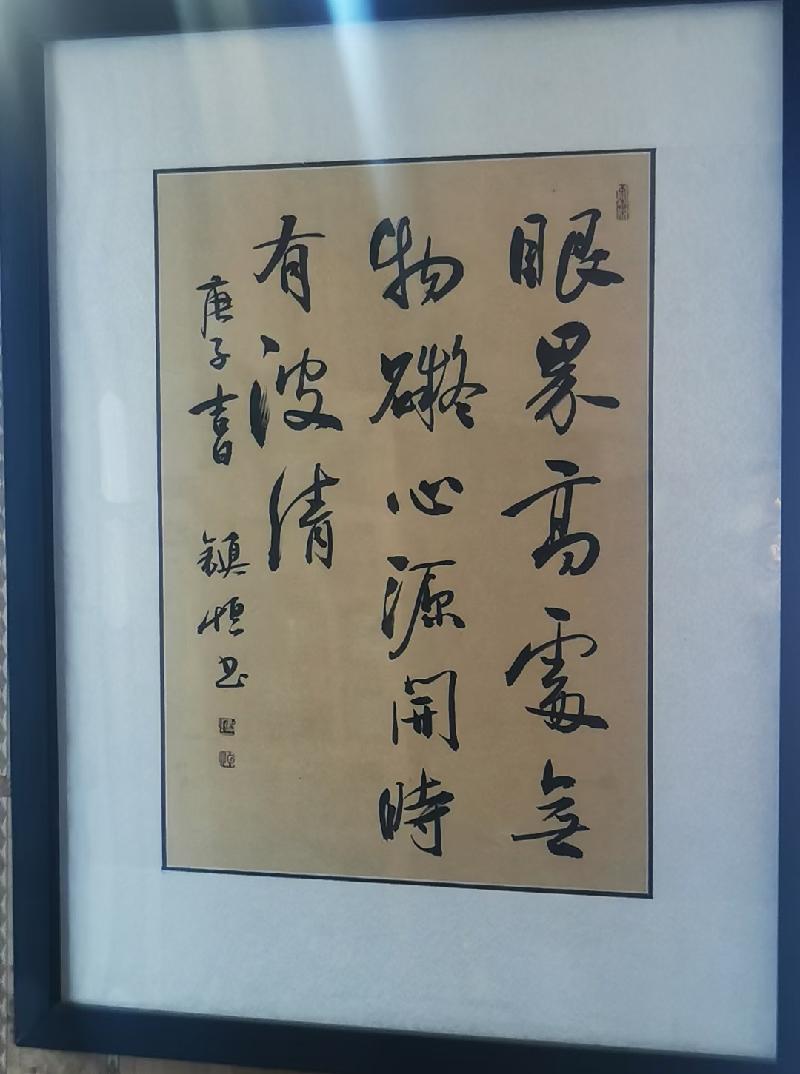 眼界高處無
物礙心源開時
有波清
庚子吉日 鎮恒书